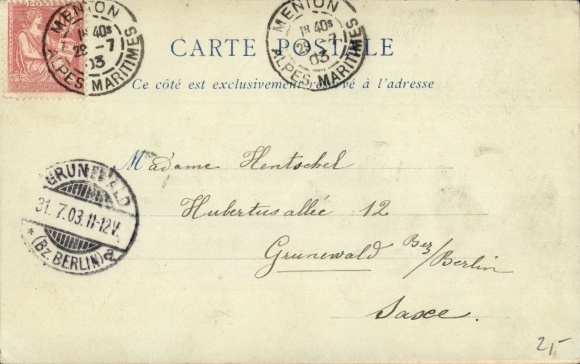 MENTON
1E 40s
29 -7
03
ALPES MARITIMES
MENTON
1E 40s
29 -7
03
ALPES MARITIMES
CARTE POSTALE
Ce côté est exclusivement réservé à l'adresse
Madame Hentschel
Hubertusallée 12
Grunewald Bez/Berlin
Saxe.
GRUNEWALD
31. 7. 03. 11-12V.
* (BZ. BERLIN) a
2,-